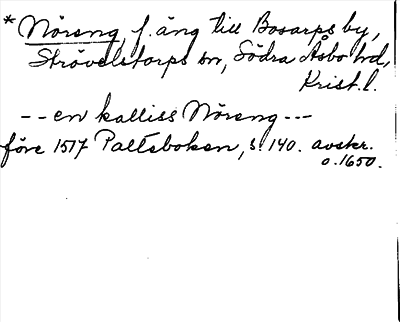 * Nöreng, f. äng till Bosarps by,
Strövelstorps sn, Södra Åsbo hd,
Krist. l.
-- en kalliss Nöreng ---
före 1517 Palteboken, s. 140. avskr.
o. 1650.